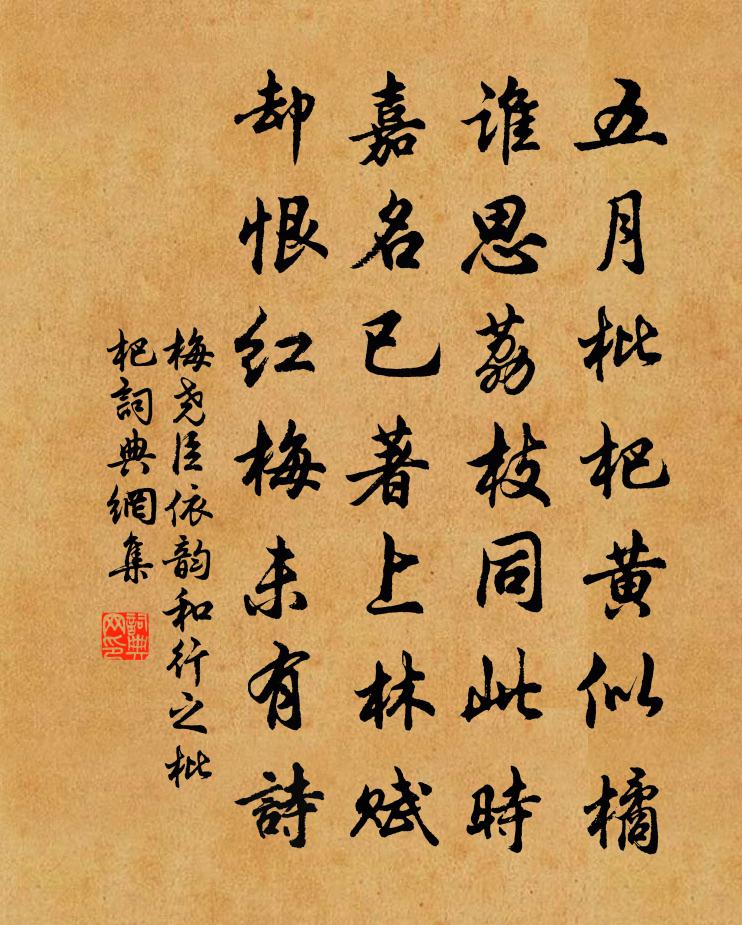 五月枇杷黄似橘
谁思荔枝同此時
嘉名已著上林赋
却恨红梅未有詩
梅尧臣依韵和行之枇
杷詞典網集
詞典
网印